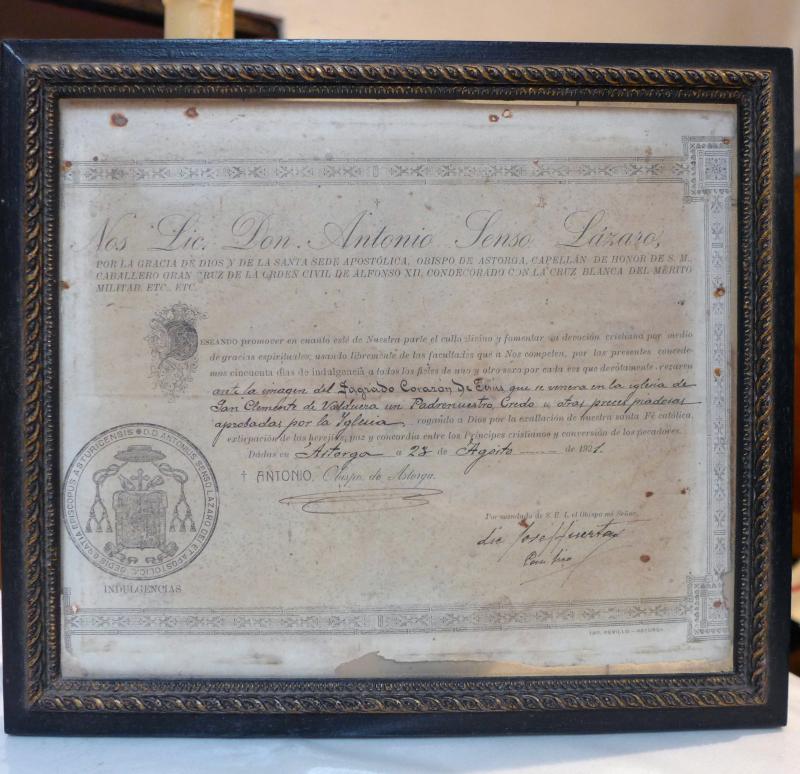 Nos Lic. Don. Antonio Senso Lázaro,
POR LA GRACIA DE DIOS Y DE LA SANTA SEDE APOSTÓLICA, OBISPO DE ASTORGA, CAPELLÁN DE HONOR DE S. M.,
CABALLERO GRAN CRUZ DE LA ORDEN CIVIL DE ALFONSO XII, CONDECORADO CON LA CRUZ BLANCA DEL MÉRITO
MILITAR, ETC., ETC.
DESEANDO promover en cuanto esté de Nuestra parte el culto divino y fomentar la devoción cristiana por medio
de gracias espirituales, usando libremente de las facultades que a Nos competen, por las presentes concede-
mos cincuenta días de indulgencia a todos los fieles de uno y otro sexo por cada vez que devotamente rezaren
ante la imagen del Sagrado Corazón De Jesús que se venera en la iglesia de
San Clemente de Valdueza un Padrenuestro Credo u otras preces piadosas
aprobadas por la Iglesia rogando a Dios por la exaltación de nuestra santa Fé católica,
extirpación de las herejías, paz y concordia entre los Príncipes cristianos y conversión de los pecadores.
Dadas en Astorga a 23 de Agosto de 1931.
† ANTONIO, Obispo de Astorga.
Por mandado de S. E. I. el Obispo mi Señor,
Lic José Huerta
D.D. ANTONIUS SENSO LAZARO DEI ET APOSTOLICÆ SEDIS GRATIA EPISCOPUS ASTURICENSIS
INDULGENCIAS
IMP. REVILLO - ASTORGA